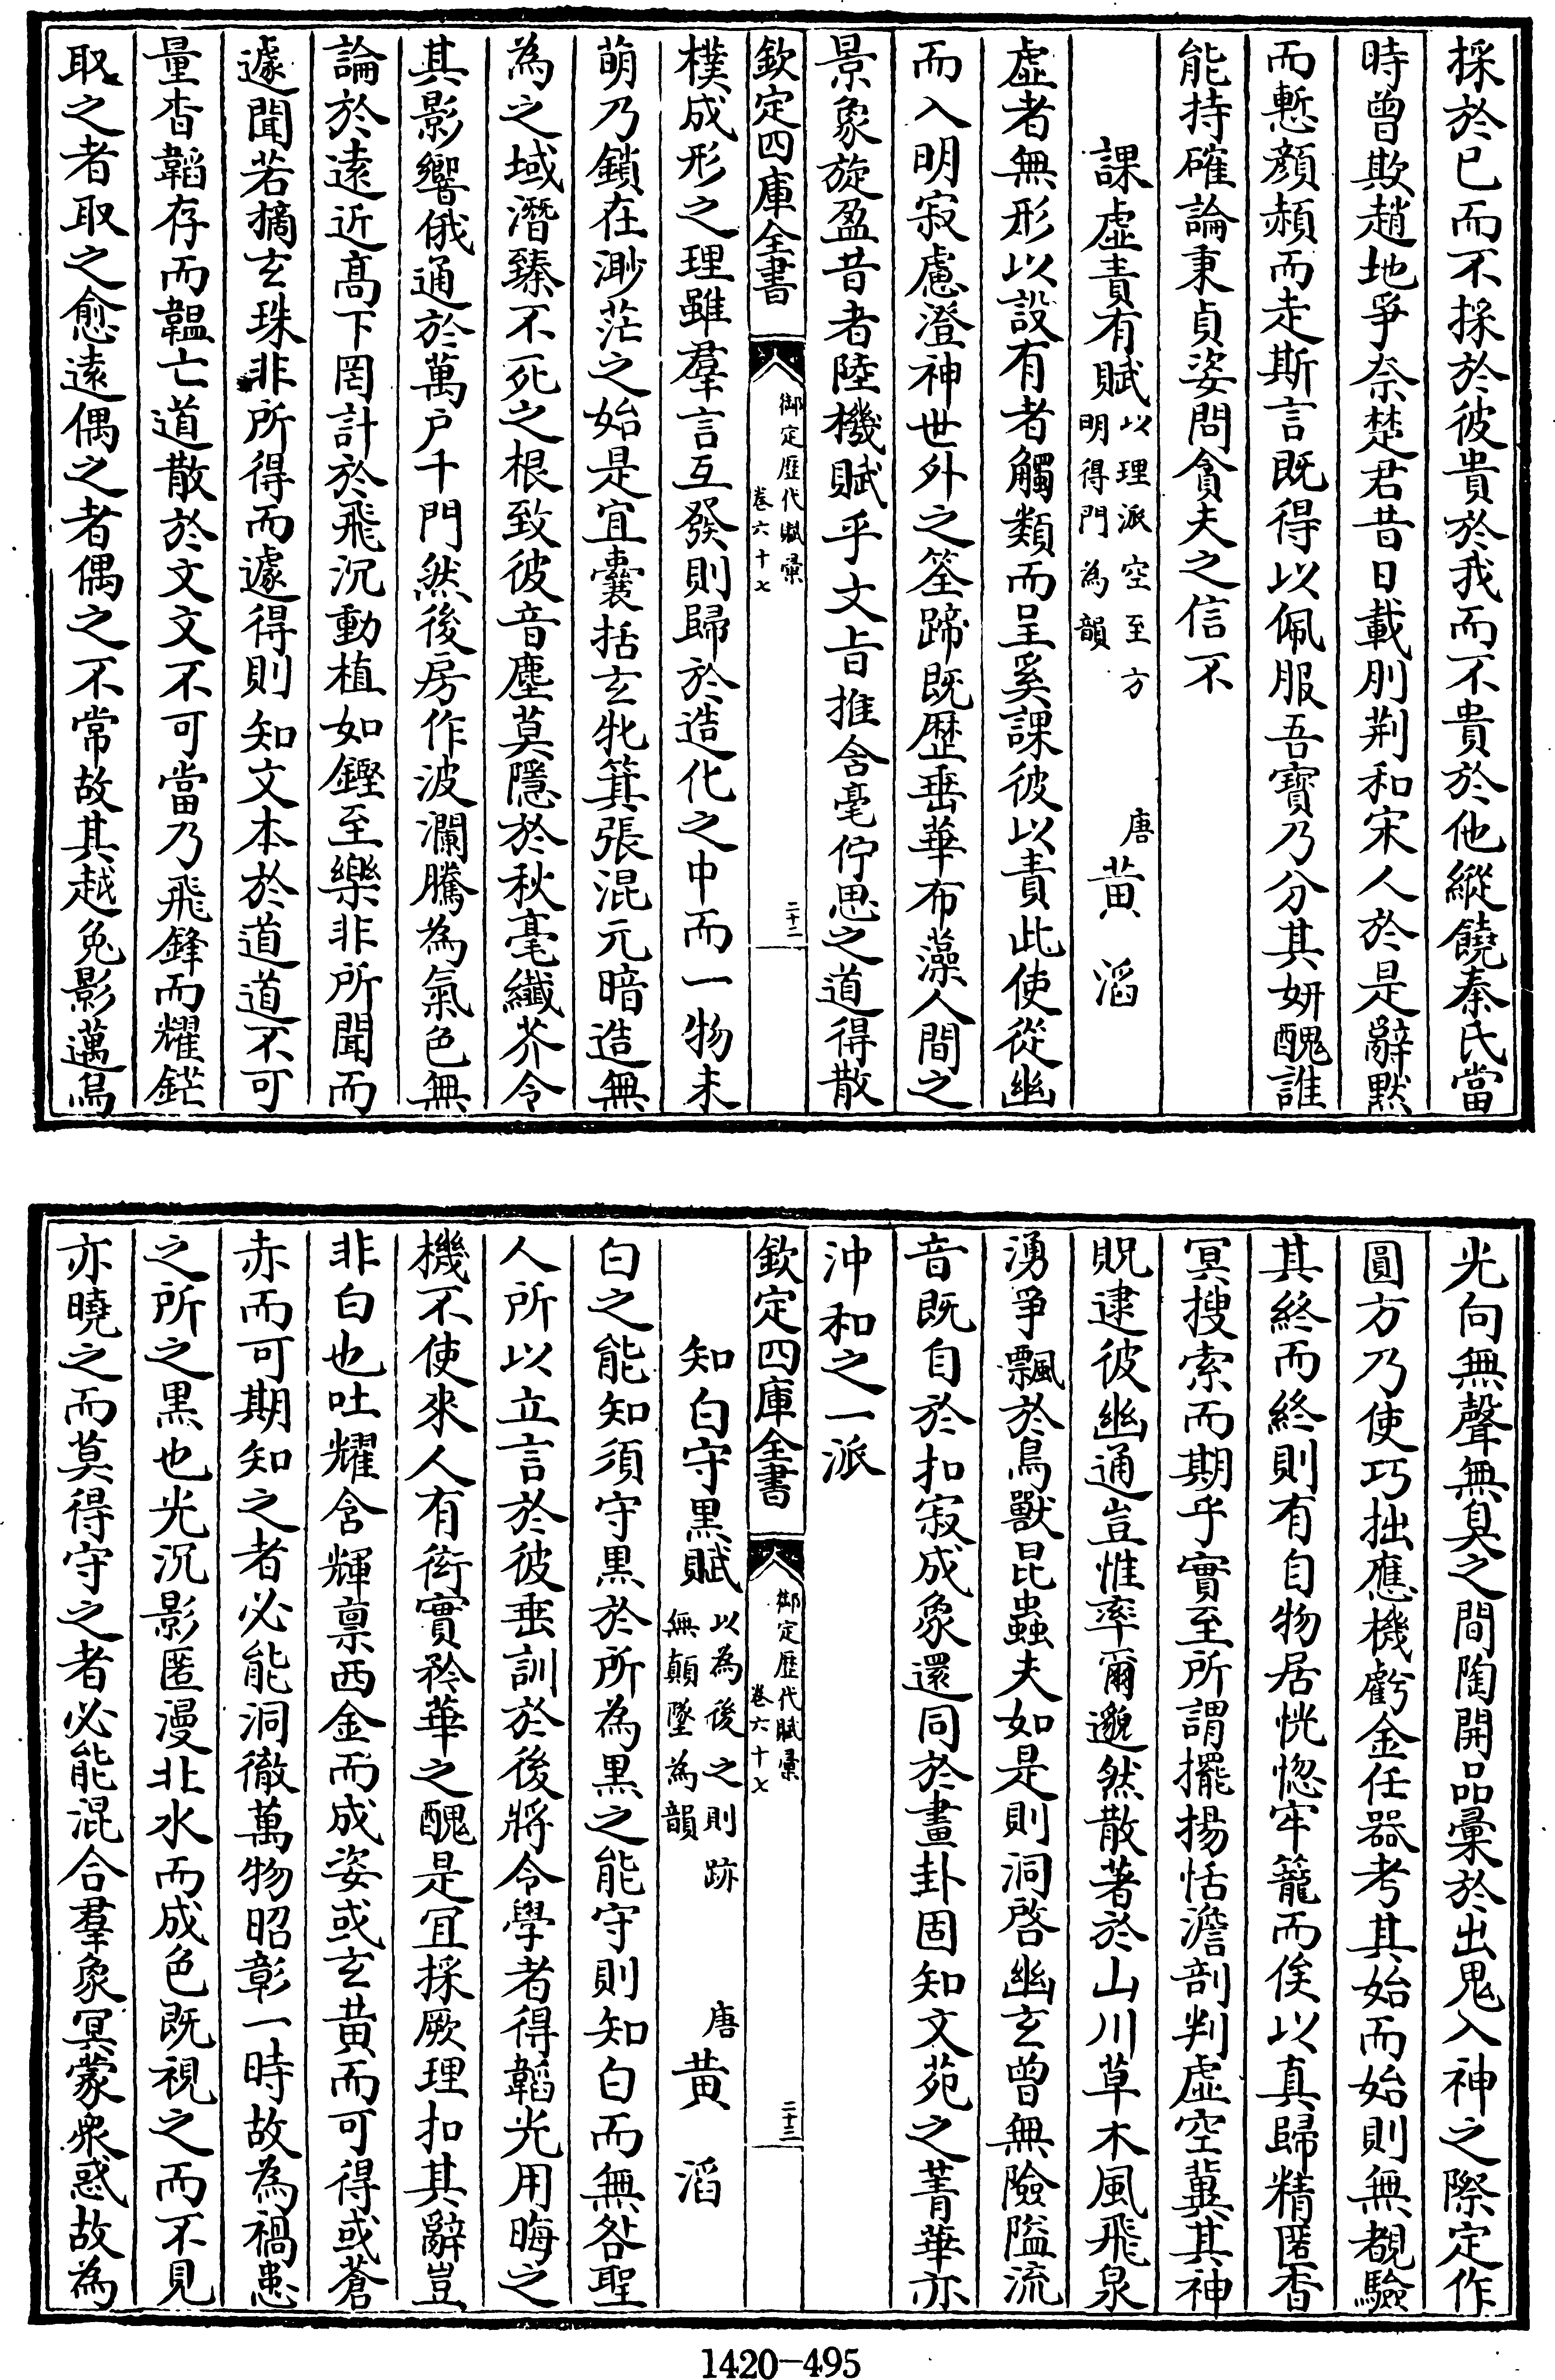 採於已而不採於彼貴於我而不貴於他縱饒秦氏當
時曾欺趙地爭奈楚君昔日載刖荆和宋人於是辭黙
而慙顔頳而走斯言既得以佩服吾寳乃分其妍醜誰
能持確論秉貞姿問貪夫之信不
課虛責有賦以理派空至方明得門為韻 唐黄滔
虛者無形以設有者觸類而呈奚課彼以責此使從幽
而入明寂慮澄神世外之筌蹄既歴垂華布藻人間之
景象旋盈昔者陸機賦乎文㫖推含毫佇思之道得散
欽定四庫全書 御定歴代賦彚 卷六十七 二十二
樸成形之理雖羣言互發則歸於造化之中而一物未
萌乃鎖在渺茫之始是宜囊括玄牝箕張混元暗造無
為之域潛臻不死之根致彼音塵莫隱於秋毫纖芥令
其影響俄通於萬户千門然後房作波瀾騰為氣色無
論於逺近髙下罔計於飛沉動植如鏗至樂非所聞而
遽聞若摘玄珠非所得而遽得則知文本於道道不可
量杳韜存而韞亡道散於文文不可當乃飛鋒而耀鋩
取之者取之愈逺偶之者偶之不常故其越兔影邁烏
光向無聲無臭之間陶開品彚於出鬼入神之際定作
圓方乃使巧拙應機虧金任器考其始而始則無覩驗
其終而終則有自物居恍惚牢籠而俟以真歸精匿杳
冥搜索而期乎實至所謂擺揚恬澹剖判虛空冀其神
貺逮彼幽通豈惟率爾邈然散著於山川草木風飛泉
湧爭飄於鳥獸昆蟲夫如是則洞啓幽玄曾無險隘流
音既自於扣寂成象還同於畫卦固知文苑之菁華亦
沖和之一派
欽定四庫全書 御定歴代賦彚 卷六十七 二十三
知白守黒賦以為後之則跡無顛墜為韻 唐黄滔
白之能知須守黒於所為黒之能守則知白而無咎聖
人所以立言於彼垂訓於後將令學者得韜光用晦之
機不使來人有衒實矜華之醜是宜採厥理扣其辭豈
非白也吐耀含輝禀西金而成姿或玄黄而可得或蒼
赤而可期知之者必能洞徹萬物昭彰一時故為禍患
之所之黒也光沉影匿漫北水而成色既視之而不見
亦曉之而莫得守之者必能混合羣象冥蒙衆惑故為
1420-495